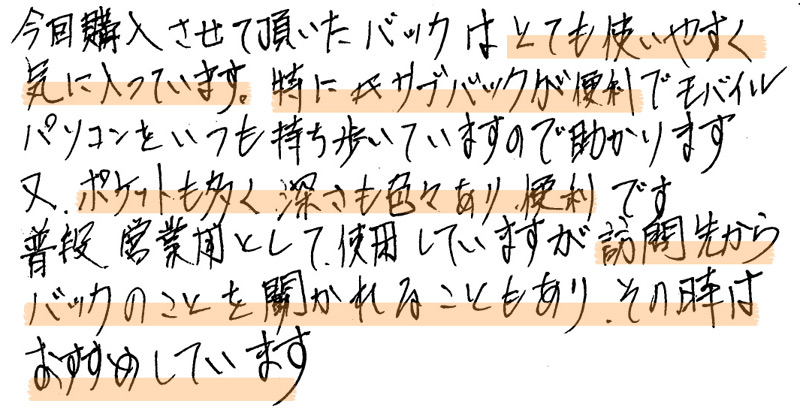 今回購入させて頂いたバックはとても使いやすく
気に入っています。特にサブバックが便利でモバイル
パソコンをいつも持ち歩いていますので助かります
又、ポケットも多く深さも色々あり、便利です
普段、営業用として、使用していますが訪問先から
バックのことを聞かれることもあり、その時は
おすすめしています